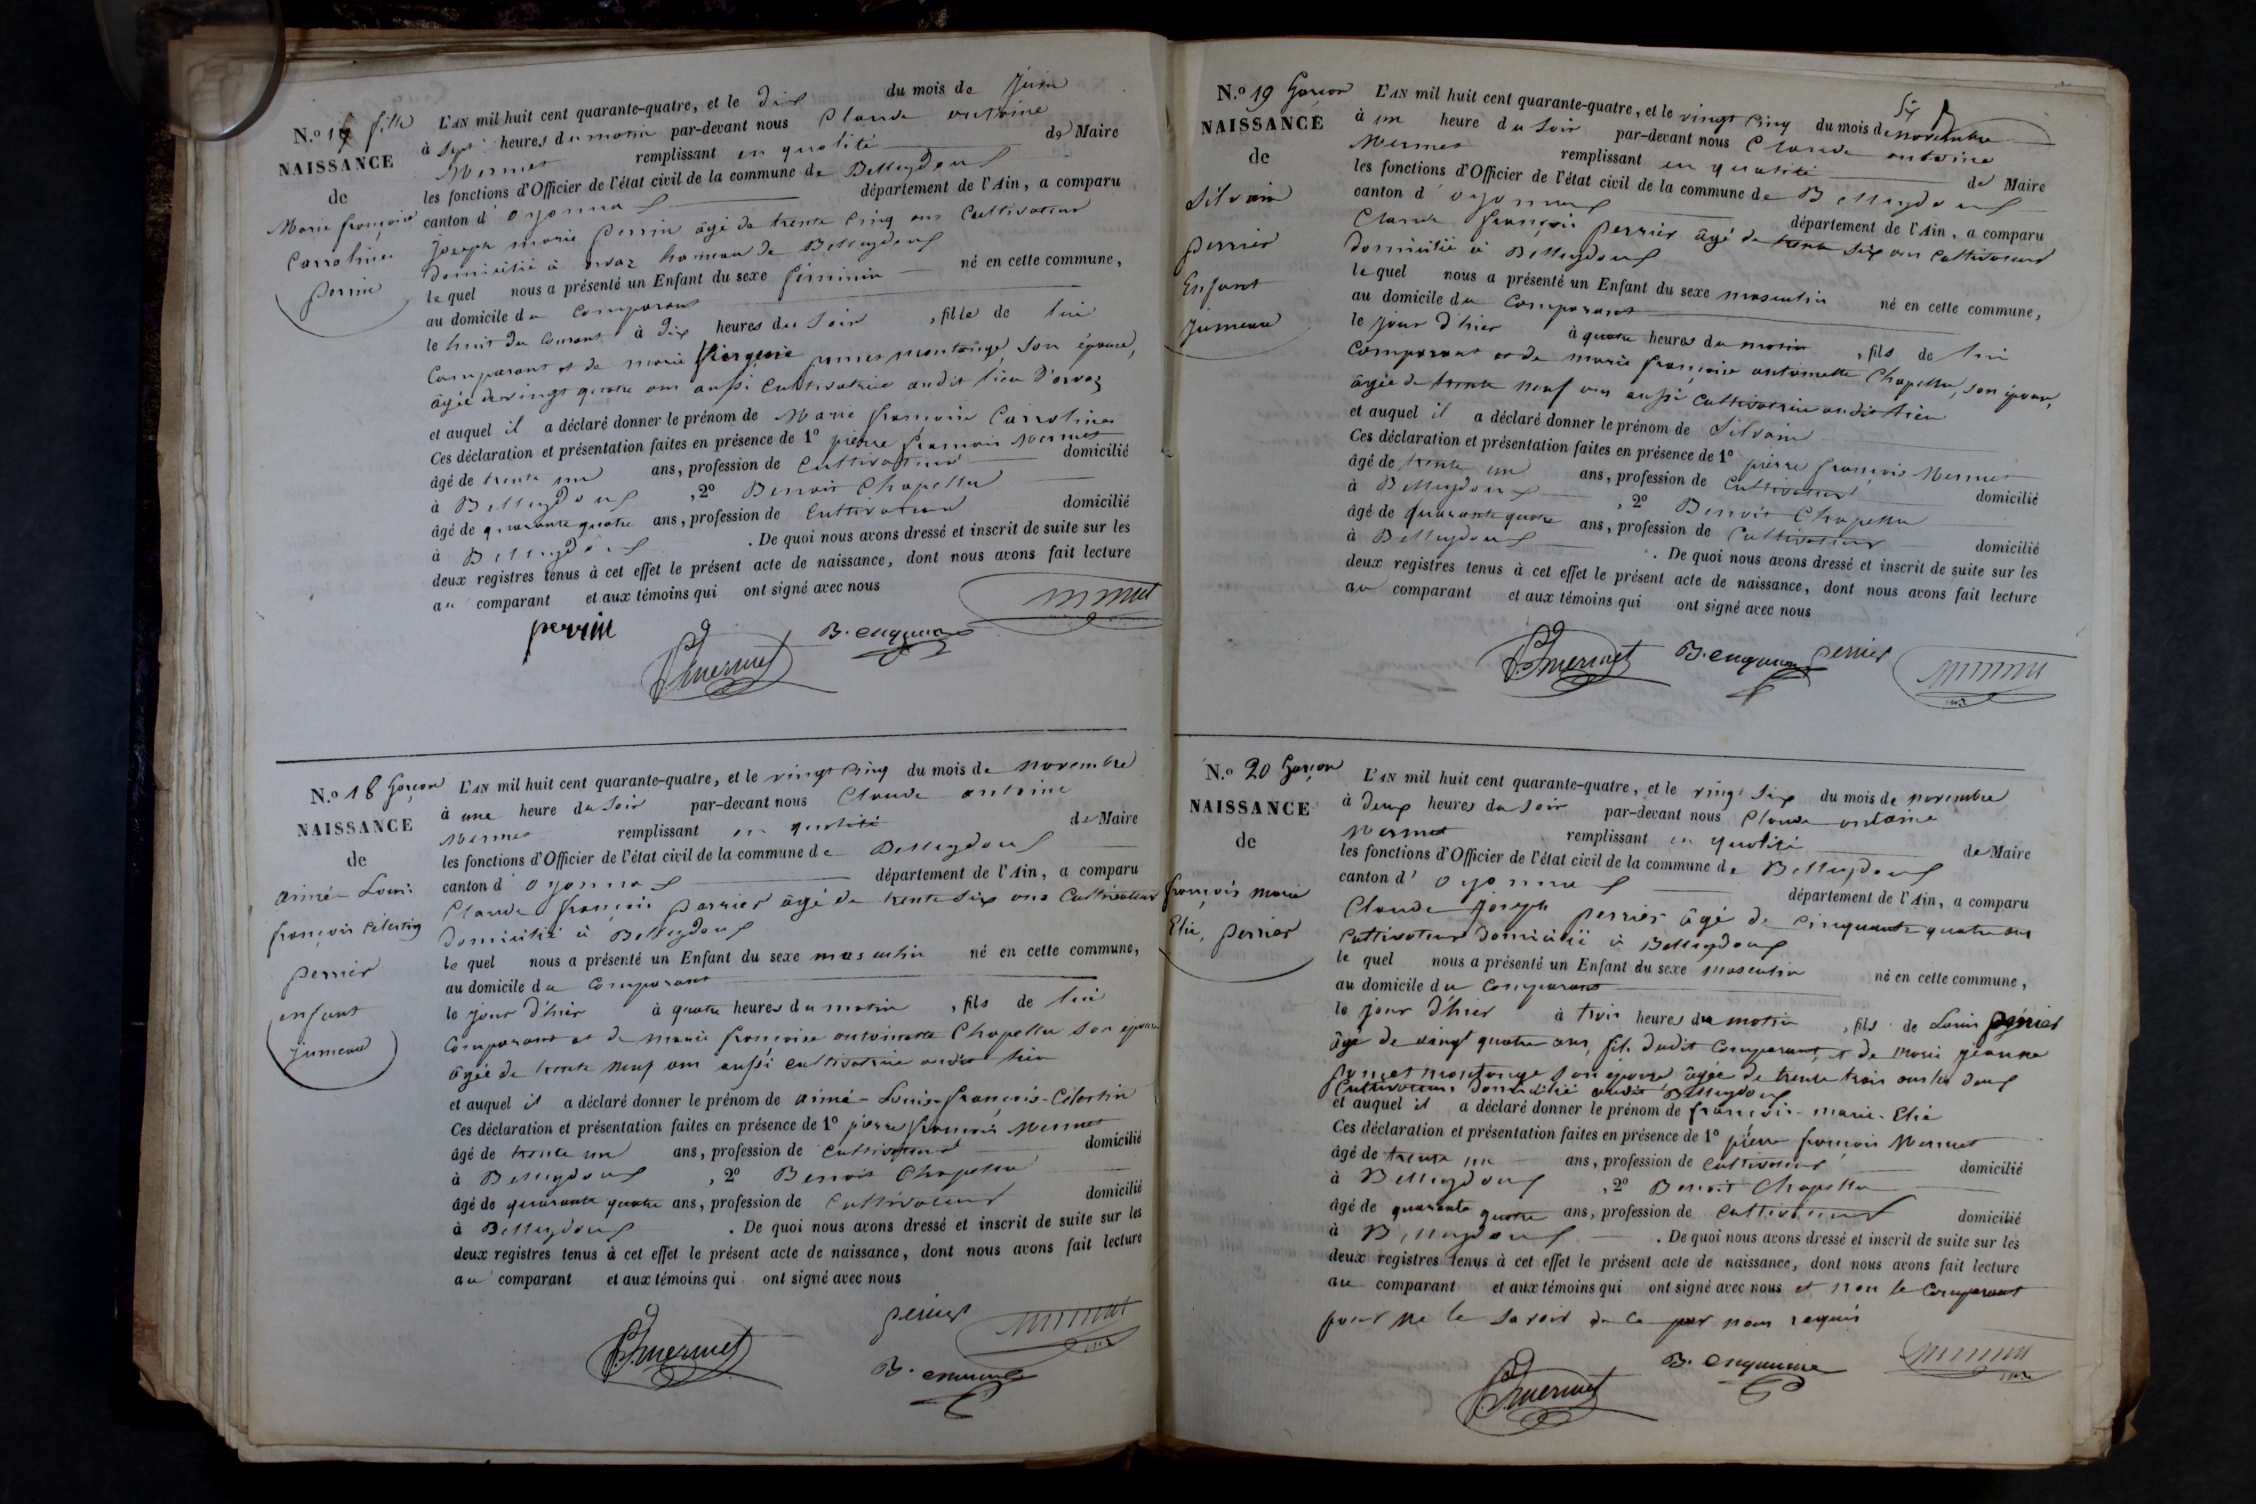 N.o 17 fille
NAISSANCE
de
Marie françoise
Carroline
perrin
L'AN mil huit cent quarante-quatre, et le dix du mois de Juin
à sept heures du matin par-devant nous Claude antoine
Mermet remplissant en qualité de Maire
les fonctions d'Officier de l'état civil de la commune de Belleydoux
canton d'oyonnax département de l'Ain, a comparu
Joseph marie perrin âgé de trente cinq ans Cultivateur
domicilié à orvaz hameau de Belleydoux
le quel nous a présenté un Enfant du sexe féminin né en cette commune,
au domicile du Comparant
le huit du Courant à dix heures du Soir, fille de lui
Comparant et de marie poncet montange, son épouse,
âgée de vingt quatre ans aussi Cultivatrice audit lieu d'orvaz
et auquel il a déclaré donner le prénom de Marie françoise Carroline
Ces déclaration et présentation faites en présence de 1º pierre françois Mermet
âgé de trente un ans, profession de Cultivateur domicilié
à Belleydoux, 2º Benoit Chapellu
âgé de quarante quatre ans, profession de Cultivateur domicilié
à Belleydoux. De quoi nous avons dressé et inscrit de suite sur les
deux registres tenus à cet effet le présent acte de naissance, dont nous avons fait lecture
au comparant et aux témoins qui ont signé avec nous
perrin
mermet
N.o 18 Garçon
NAISSANCE
de
aimé Louis
françois Célestin
perrier
enfant
jumeau
L'AN mil huit cent quarante-quatre, et le vingt cinq du mois de novembre
à une heure du Soir par-devant nous Claude antoine
Mermet remplissant en qualité de Maire
les fonctions d'Officier de l'état civil de la commune de Belleydoux
canton d'oyonnax département de l'Ain, a comparu
Claude françois perrier âgé de trente six ans Cultivateur
domicilié à Belleydoux
le quel nous a présenté un Enfant du sexe masculin né en cette commune,
au domicile du Comparant
le jour d'hier à quatre heures du matin, fils de lui
Comparant et de marie françoise antoinette Chapellu son épouse
âgée de trente neuf ans aussi cultivatrice audit lieu
et auquel il a déclaré donner le prénom de aimé-Louis-françois-Célestin
Ces déclaration et présentation faites en présence de 1º pierre françois Mermet
âgé de trente un ans, profession de Cultivateur domicilié
à Belleydoux, 2º Benoit Chapellu
âgé de quarante quatre ans, profession de Cultivateur domicilié
à Belleydoux. De quoi nous avons dressé et inscrit de suite sur les
deux registres tenus à cet effet le présent acte de naissance, dont nous avons fait lecture
au comparant et aux témoins qui ont signé avec nous
perrier
mermet
N.o 19 Garçon
NAISSANCE
de
Silvain
perrier
Enfant
jumeau
L'AN mil huit cent quarante-quatre, et le vingt cinq du mois de novembre
à un heure du Soir par-devant nous Claude antoine
Mermet remplissant en qualité de Maire
les fonctions d'Officier de l'état civil de la commune de Belleydoux
canton d'oyonnax département de l'Ain, a comparu
Claude françois perrier âgé de trente six ans Cultivateur
domicilié à Belleydoux
le quel nous a présenté un Enfant du sexe masculin né en cette commune,
au domicile du Comparant
le jour d'hier à quatre heures du matin, fils de lui
Comparant et de marie françoise antoinette Chapellu, son épouse,
âgée de trente neuf ans aussi Cultivatrice audit lieu
et auquel il a déclaré donner le prénom de Silvain
Ces déclaration et présentation faites en présence de 1º pierre françois Mermet
âgé de trente un ans, profession de Cultivateur domicilié
à Belleydoux, 2º Benoit Chapellu
âgé de quarante quatre ans, profession de Cultivateur domicilié
à Belleydoux. De quoi nous avons dressé et inscrit de suite sur les
deux registres tenus à cet effet le présent acte de naissance, dont nous avons fait lecture
au comparant et aux témoins qui ont signé avec nous
mermet perrier
N.o 20 Garçon
NAISSANCE
de
françois marie
Elie, perrier
L'AN mil huit cent quarante-quatre, et le vingt six du mois de novembre
à deux heures du Soir par-devant nous Claude antoine
Mermet remplissant en qualité de Maire
les fonctions d'Officier de l'état civil de la commune de Belleydoux
canton d'oyonnax département de l'Ain, a comparu
Claude Joseph perrier âgé de cinquante quatre ans
Cultivateur domicilié à Belleydoux
le quel nous a présenté un Enfant du sexe masculin né en cette commune,
au domicile du Comparant
le jour d'hier à trois heures du matin, fils de Louis perrier
âgé de vingt quatre ans, fils dudit Comparant, et de Marie jeanne
poncet montange son épouse âgée de trente trois ans les deux
Cultivateurs domicilié audit Belleydoux
et auquel il a déclaré donner le prénom de françois-marie-Elie
Ces déclaration et présentation faites en présence de 1º pierre françois Mermet
âgé de trente un ans, profession de Cultivateur domicilié
à Belleydoux, 2º Benoit Chapellu
âgé de quarante quatre ans, profession de Cultivateur domicilié
à Belleydoux. De quoi nous avons dressé et inscrit de suite sur les
deux registres tenus à cet effet le présent acte de naissance, dont nous avons fait lecture
au comparant et aux témoins qui ont signé avec nous et non le Comparant
pour ne le savoir de ce par nous requis
mermet